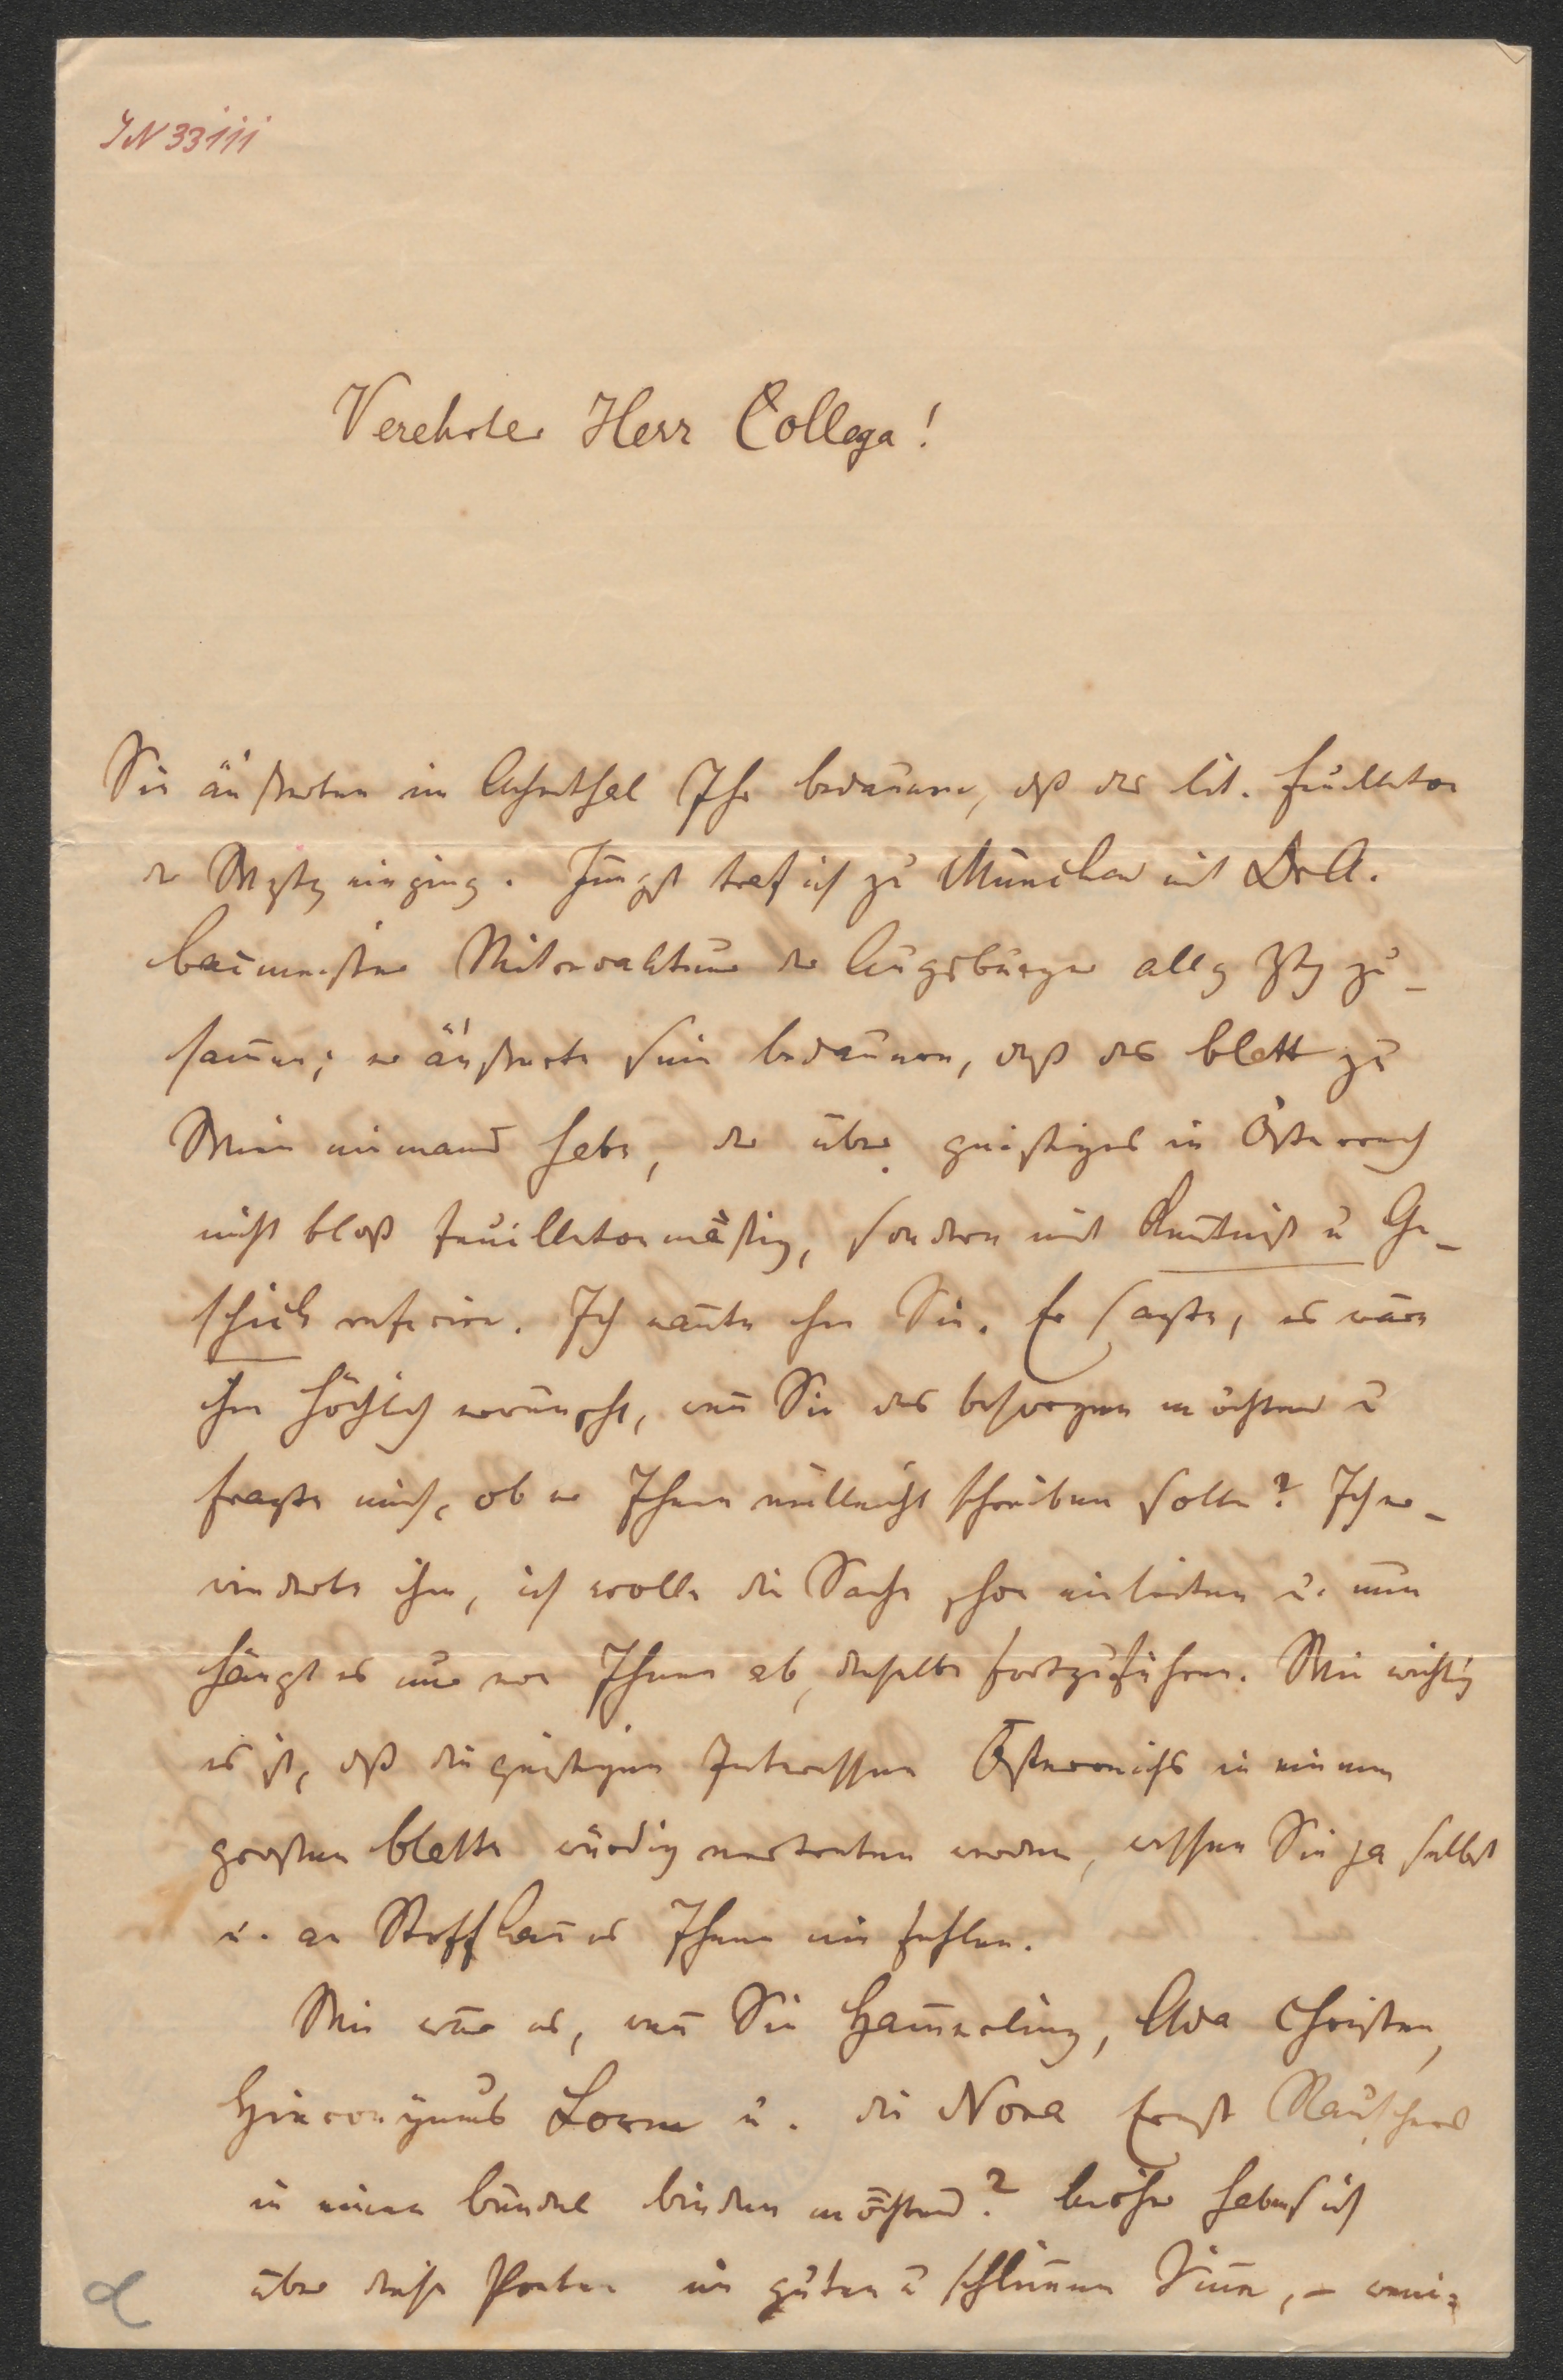 IN 33111
Verehrter Herr Collega!
Sie äußerten im Achenthal Ihr bedauern, daß das lit. feuilleton
der Wgztg einging. Jüngst traf ich zu München mit Dr A.
baumeister Mitredakteur der Augsburger allg Ztg zu-
sammen; er äußerte sein bedauern, daß das blatt zu
Wien niemand habe, der über geistiges in Österreich
nicht bloß feuilletonmäßig, sondern mit Kentniß u Ge-
schick referire. Ich nannte ihm Sie. Er sagte, es wäre
ihm höchlich erwünscht, wenn Sie das besorgen möchten u
fragte mich, ob er Ihnen vielleicht schreiben solle? Ich er-
widerte ihm, ich wolle die Sache schon einleiten u. nun
hängt es nur von Ihnen ab, dieselbe fortzuführen. Wie wichtig
es ist, daß die geistigen Interessen Österreichs in einem
großen blatte würdig vertreten werden, wissen Sie ja selbst
u. an Stoff kann es Ihnen nie fehlen.
Wie wäre es, wenn Sie Hammerling, Ada Christen,
Hieronymus Lorm u. die Nora Ernst Rauschers
in einen bündel binden möchten? haben sich
über diese Poeten im guten u schlimmen Sinne, – weni-